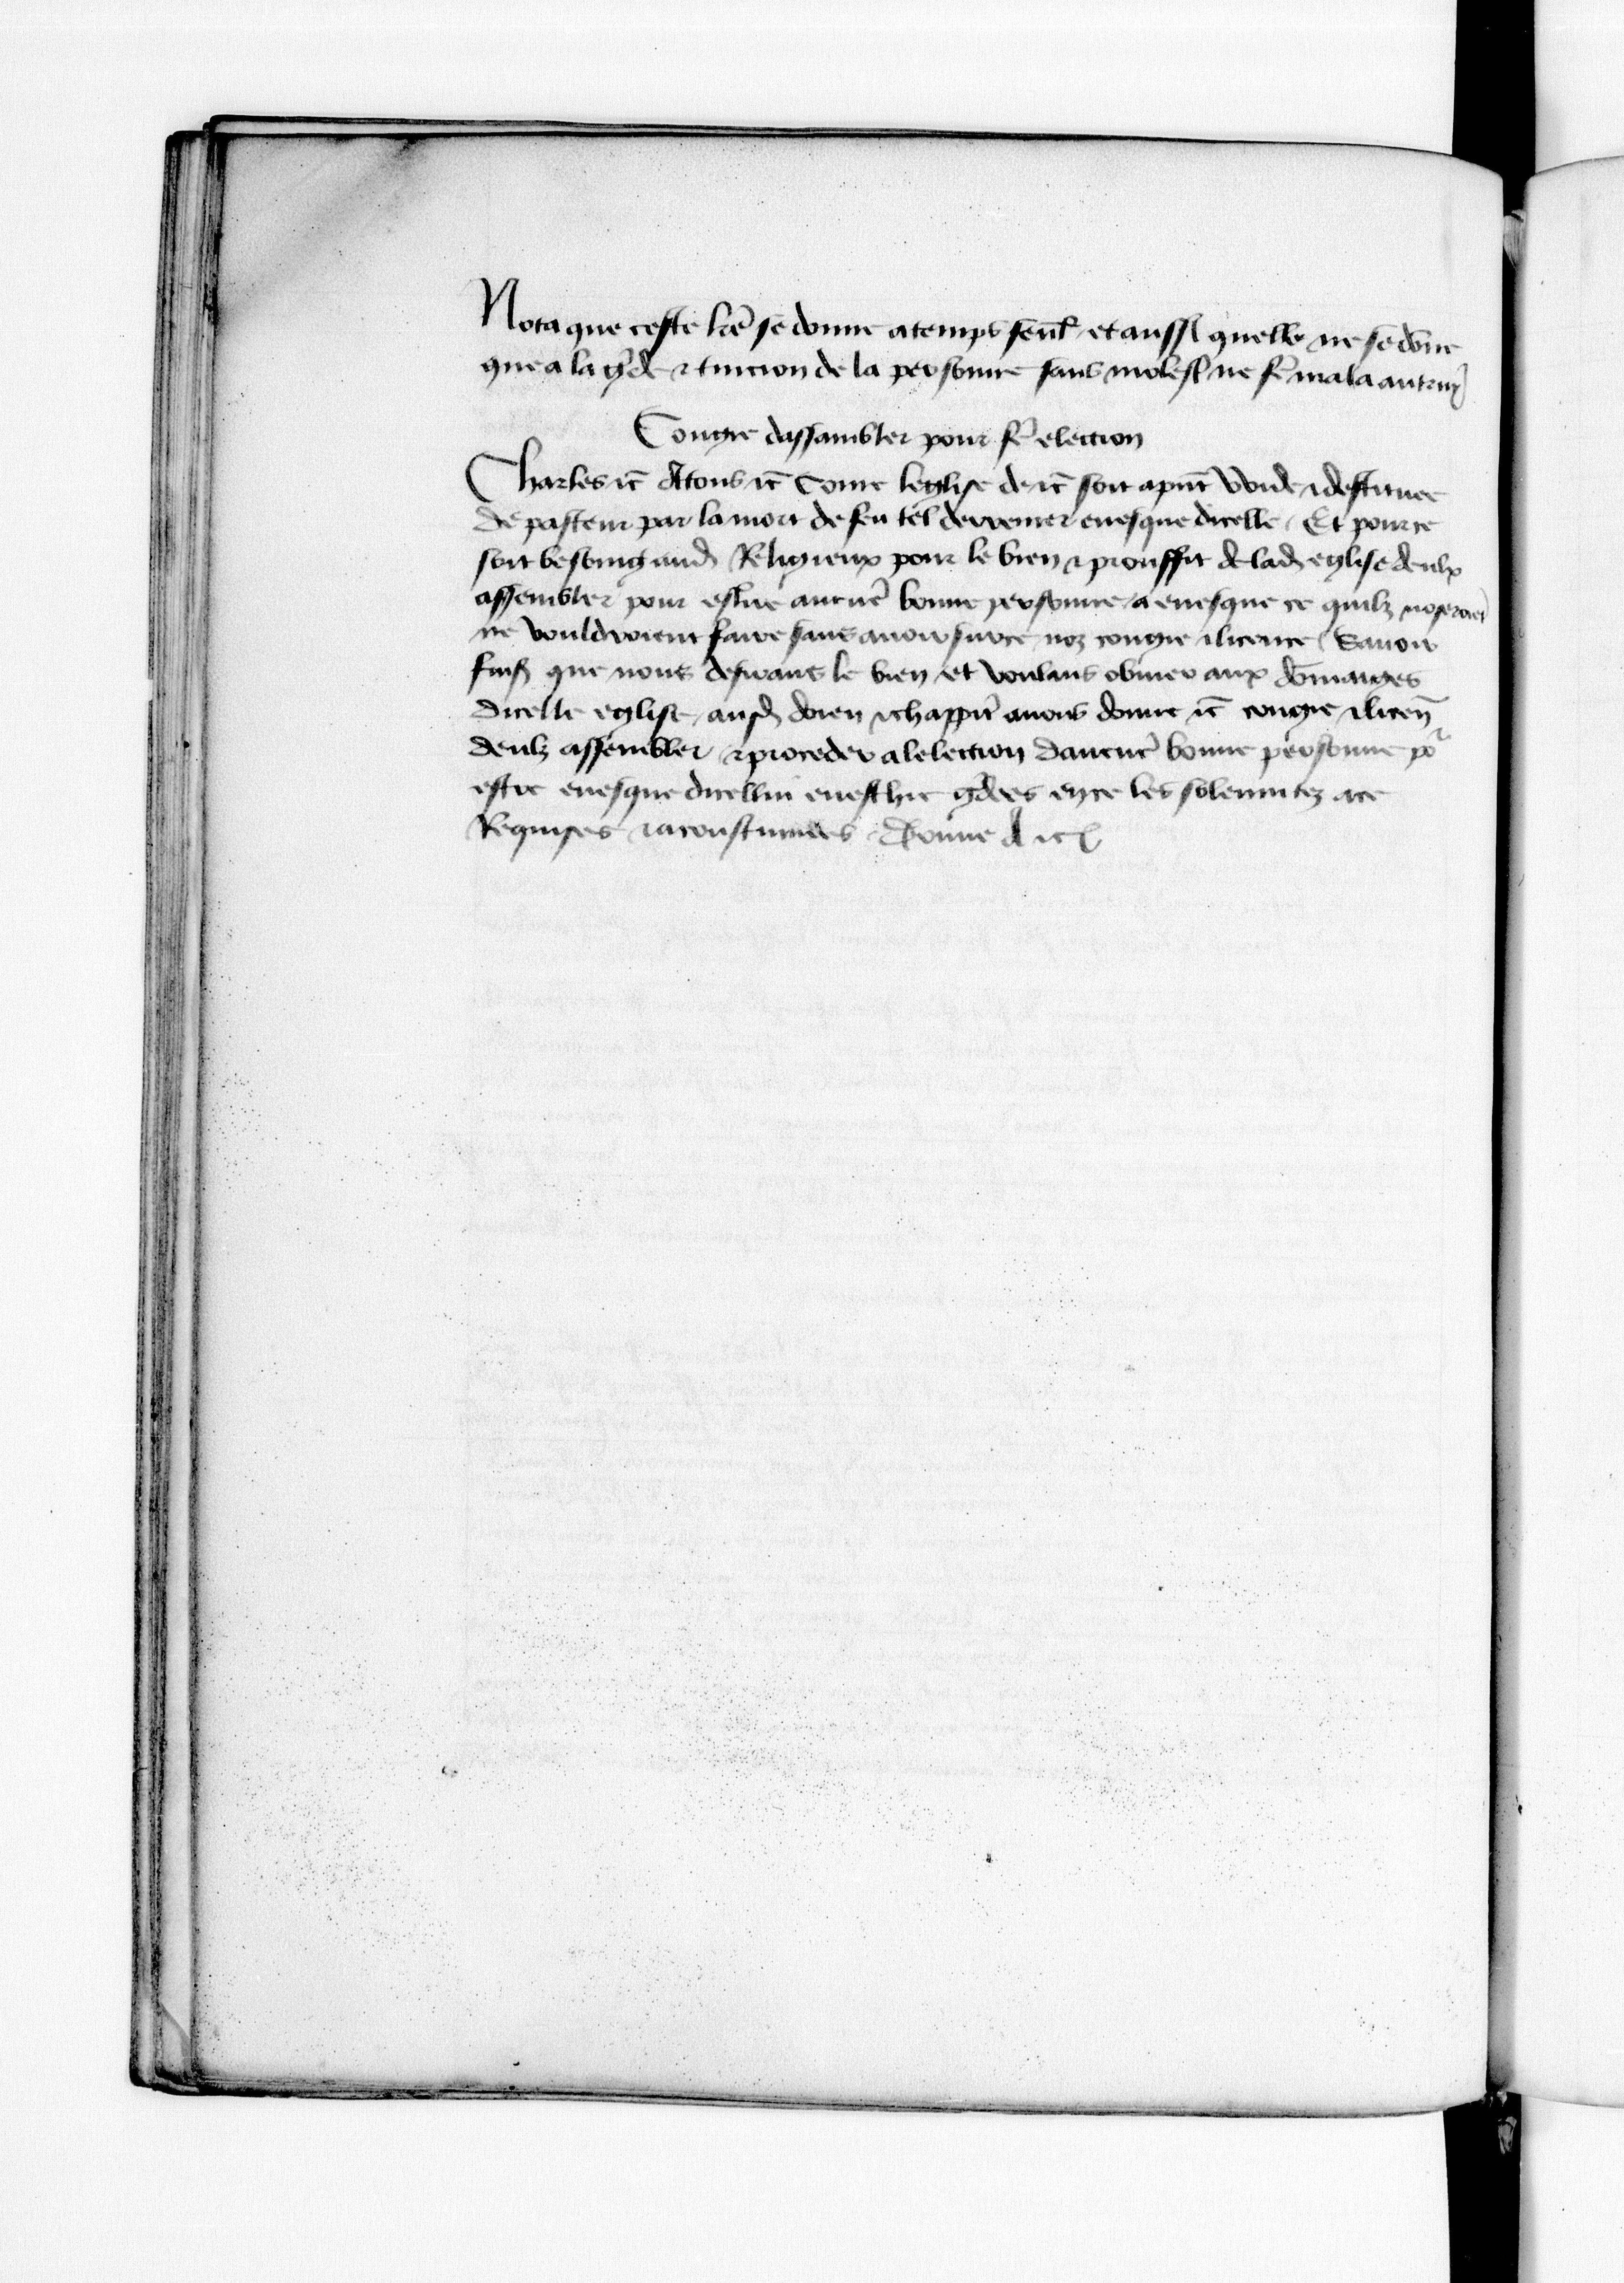 Nota que ceste lr̄e se donne a temps seul̄t et aussi quelle ne se dōne
que a la gͬde & tuicion de la personne sans molest ne fͤ mal a autruy
Congie dassambler pour fͤ election
Charles ic̄ A tous ic̄ Come leglise de ic̄ soit a pn̄t vuide & destituee
de pasteur par la mort de feu tel derrenier euesque dicelle Et pour ce
soit besoing aud Religieux pour le bien & prouffit de lad eglise deulx
assembler pour eslire aucune bonne personne a euesque ce quilz noseroiēt
ne vouldroient faire sans auoir sur ce noz congie & licence Sauoir
fais que nous desirans le bien et voulans obuier aux dōmaiges
dicelle eglise ausd doien & chappitr̄ auons donne ic̄ congie & licen̄
deulz assembler & proceder a lelection daucune bonne personne po᷑
estre euesque dicellui euesche gͬdees en ce les solennitez a ce
Requises & acoustumees Donne A ic̄